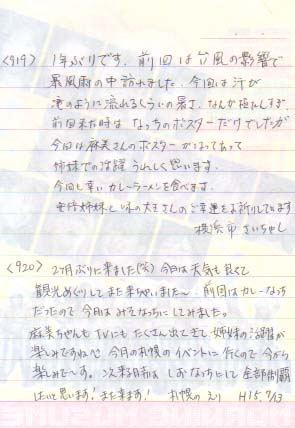 <919> 1年ぶりです。前回は台風の影響で
暴風雨の中訪れました。今回は汗が
滝のように流れるくらいの暑さ、なんか極たんすぎ。
前回来た時はなっちのポスターだけでしたが
今日は麻美さんのポスターがはってあって
姉妹での活躍うれしく思います。
今回も辛いカレーラーメンを食べます。
安倍姉妹と味の大王さんのご幸運をお祈りしています
横浜市 さいちゃん
<920> 2ヶ月ぶりに来ました(笑) 今日は天気も良くて
観光めぐりしてまた来ちゃいました〜。前回はカレーなっち
だったので今日はみそなっちにしてみました。
麻美ちゃんもTVにもたくさん出てきて姉妹の活躍が
楽しみですね 今月の札幌のイベントに行くので今から
楽しみで〜す。次来る時は しおなっちにして全部制覇
したいと思います! また来ます! 札幌の えり H15.7/13